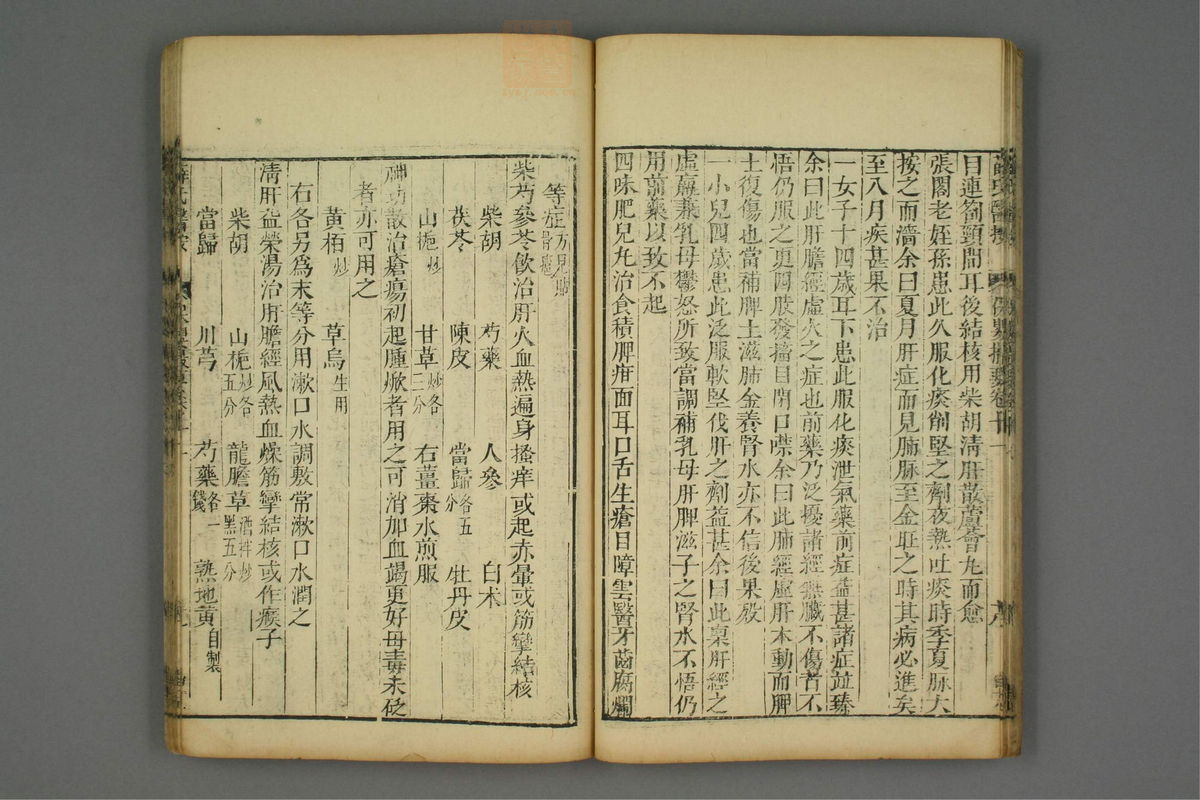 目連劄頸間耳後結核用柴胡清肝散蘆薈丸而愈
張閣老姪孫患此久服化痰削堅之劑夜熱吐痰時季夏脉大
按之而濇余曰夏月肝症而見肺脉至金旺之時其病必進矣
至八月疾甚果不治
一女子十四歲耳下患此服化痰泄氣藥前症益甚諸症竝臻
余曰此肝膽經虛火之症也前藥乃泛擾諸經無臟不傷苦不
悟仍服之更四肢發搐目閉口噤余曰此肺經虛肝木動而脾
土復傷也當補脾土滋肺金養腎水亦不信後果歿
一小兒四歲患此泛服軟堅伐肝之劑益甚余曰此稟肝經之
虛羸兼乳母鬱怒所致當調補乳母肝脾滋子之腎水不悟仍
用前藥以致不起
四味肥兒丸治食積脾疳面耳口舌生瘡目障雲翳牙齒腐爛
等症方見貼骨癰
柴芍參苓飲治肝火血熱遍身搔痒或起赤暈或筋攣結核
柴胡 芍藥 人參 白术
茯苓 陳皮 當歸各五分 牡丹皮
山梔炒 甘草炒各三分 右薑棗水煎服
神功散治瘡瘍初起腫焮者用之可消加血竭更好毋毒未砭
者亦可用之
黃栢炒 草烏生用
右各另爲末等分用漱口水調敷常漱口水潤之
清肝益榮湯治肝膽經風熱血燥筋攣結核或作瘊子
柴胡 山梔炒各五分 龍膽草酒拌炒黑五分
當歸 川芎 芍藥各一錢 熟地黃自製